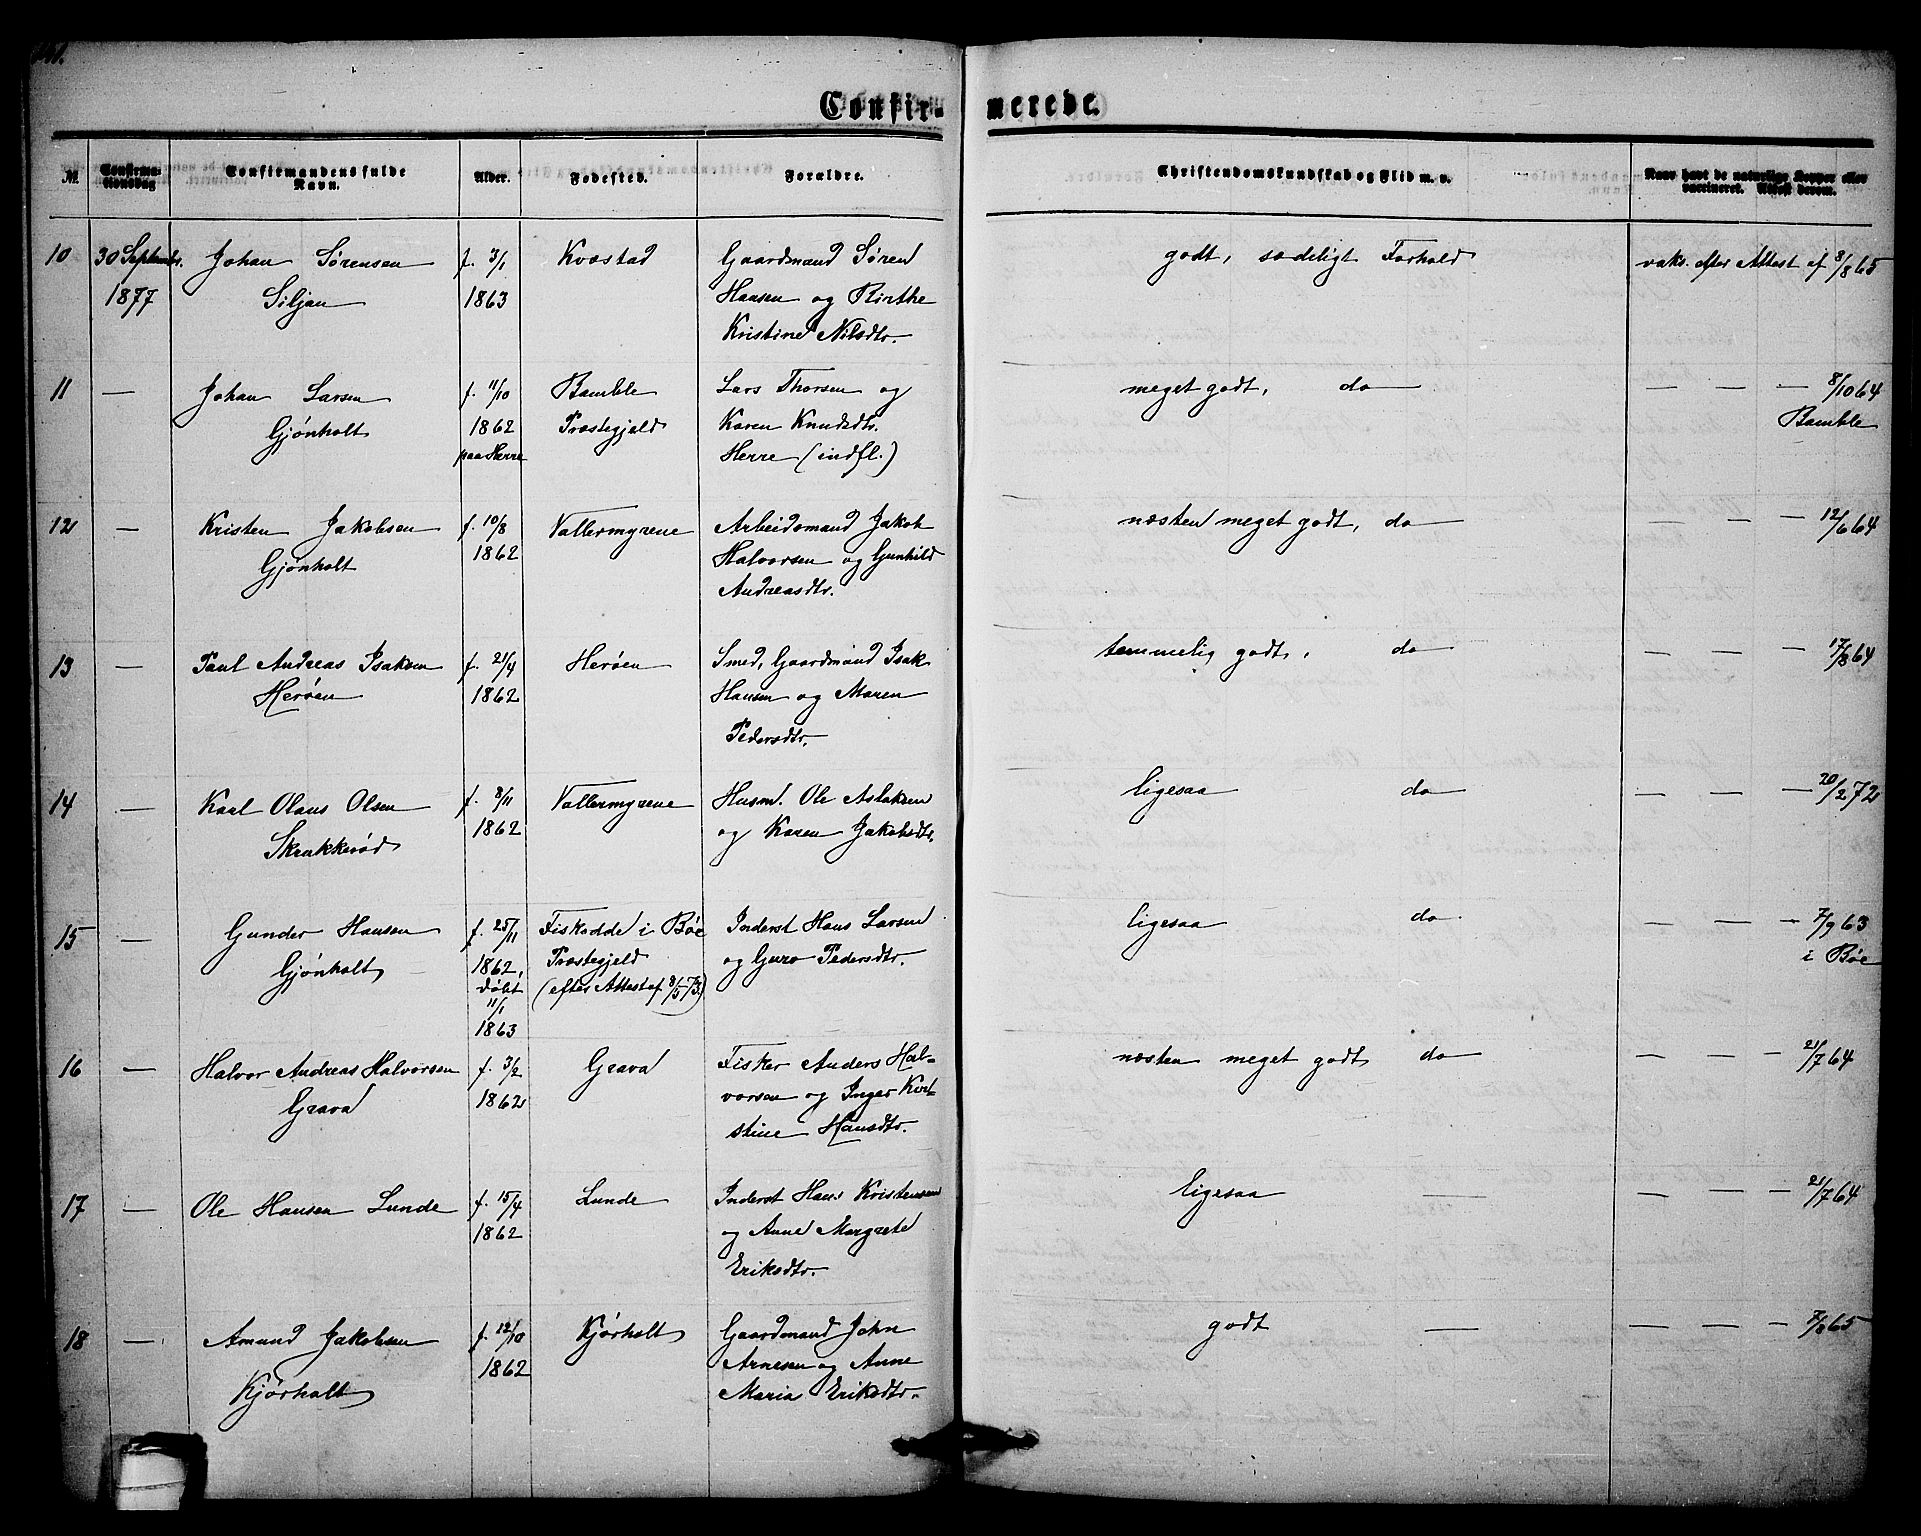 Confirmerede.
№. Confirmationsdag Confirmandens fulde Navn. Alder. Fødested. Forældre. Christendomskundskab og Flid m. v. Naar havt de naturlige Kopper eller vaccineret. Attest derom.
10 30 Septembr. Johan Sørensen f. 3/1 Kvæstad Gaardmand Søren godt, sædeligt Forhold vaks. efter Attest af 8/8 65
1877 Siljan 1863 Hansen og Birthe
Kristine Nilsdtr.
11 — Johan Larsen f. 11/10 Bamble Lars Thorsen og meget godt, do — — — — 8/10 64
Gjønholt 1862 Præstegjeld Karen Knudsdtr. Bamble
paa Herre Herre (indfl.)
12 — Kristen Jakobsen f. 10/8 Vallermyrene Arbeidsmand Jakob næsten meget godt, do — — — — 12/6 64
Gjønholt 1862 Halvorsen og Gunhild
Andreasdtr.
13 — Paul Andreas Isaksen f. 21/4 Herøen Smed, Gaardmand Isak temmelig godt, do — — — — 17/8 64
Herøen 1862 Hansen og Maren
Pedersdtr.
14 — Karl Olaus Olsen f. 8/11 Vallermyrene Husm. Ole Aslaksen ligesaa do — — — — 20/2 72
Skrukkerød 1862 og Karen Jakobsdtr.
15 — Gunder Hansen f. 25/11 Fiskodde i Bøe Inderst Hans Larsen ligesaa do — — — — 7/9 63
Gjønholt 1862, Præstegjeld og Guro Pedersdtr. i Bøe
døbt (efter Attest af 8/5 73)
11/1
1863
16 — Halvor Andreas Halvorsen f. 3/2 Grava Fisker Anders Hal- næsten meget godt do — — — — 21/7 64
Grava 1862 vorsen og Inger Kri-
stine Hansdtr.
17 — Ole Hansen Lunde f. 15/4 Lunde Inderst Hans Kristensen ligesaa — — — — 21/7 64
1862 og Anne Margrete
Eriksdtr.
18 — Amund Jakobsen f. 12/10 Kjørholt Gaardmand John godt — — — — 7/8 65
Kjørholt 1862 Arnesen og Anne
Maria Eriksdtr.